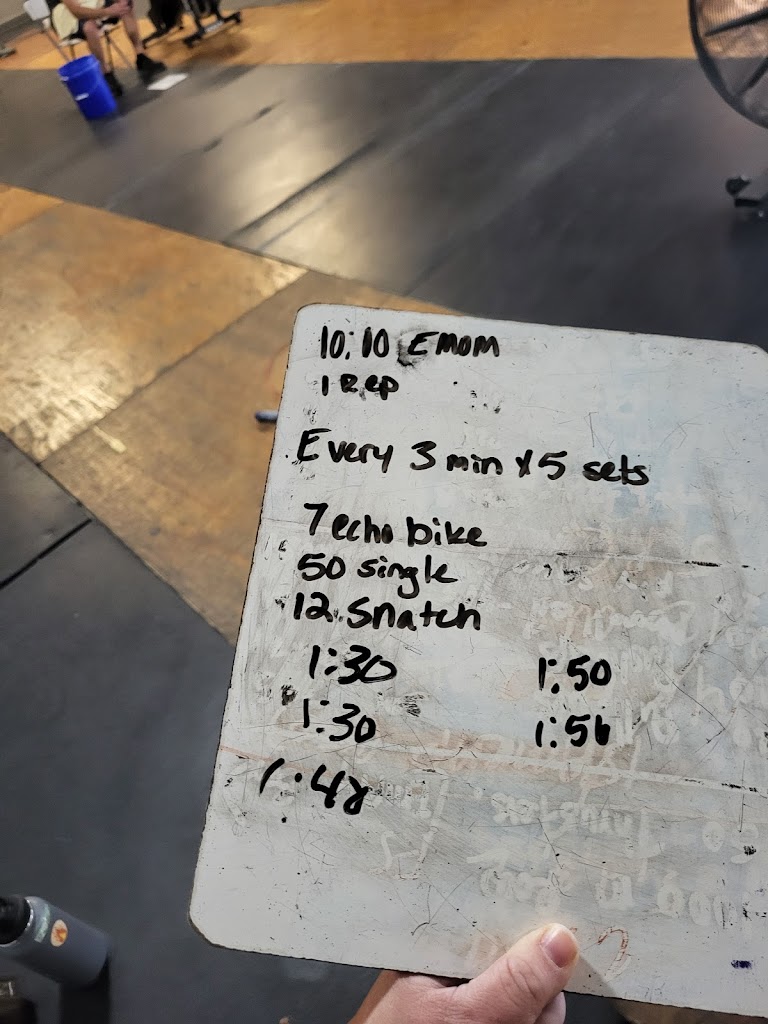 10:10 EMOM
1 Rep
Every 3 min x 5 sets
7 echo bike
50 single
12 Snatch
1:30
1:30
1:48
1:50
1:56